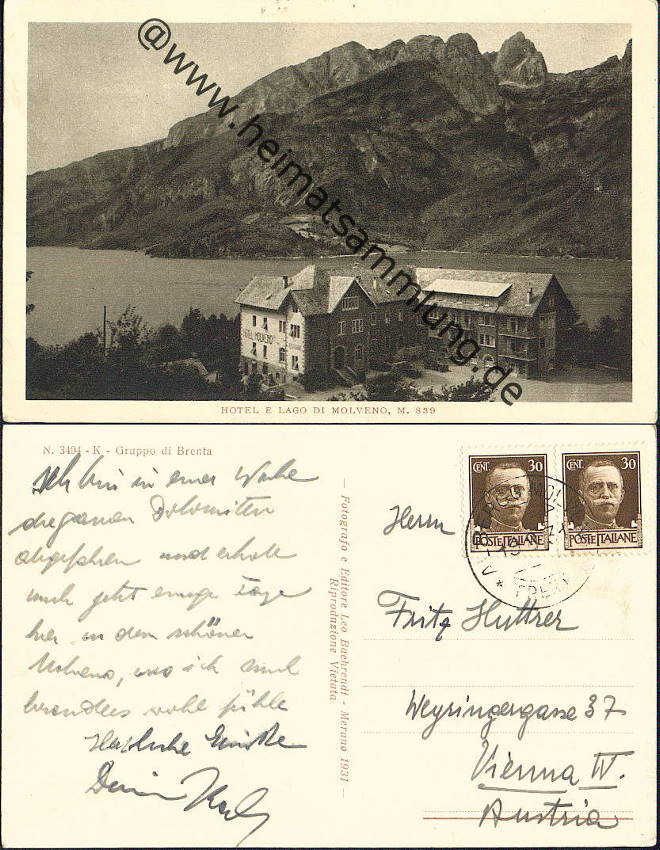 @www.heimatsammlung.de
HOTEL MOLVENO
HOTEL E LAGO DI MOLVENO, M. 839
N. 3494 - K - Gruppo di Brenta
Ich bin in einer Woche
die ganzen Dolomiten
abgefahren und erhole
mich jetzt einige Tage
hier in dem schönen
Molveno, wo ich mich
besonders wohl fühle
Herzliche Grüße
— Fotografo e Editore Leo Baehrendt - Merano 1931 —
Riproduzione Vietata
CENT. 30
POSTE ITALIANE
CENT. 30
POSTE ITALIANE
Herrn
Fritz Huttrer
Weyringergasse 37
Vienna IV.
Austria